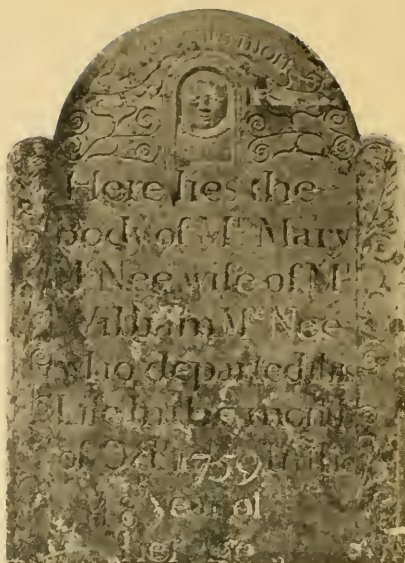 memory
Here lies the
Body of Mrs Mary
McNee wife of Mr
William McNee
who departed this
Life in the month
of Oct 1759 in the
Year of
her age